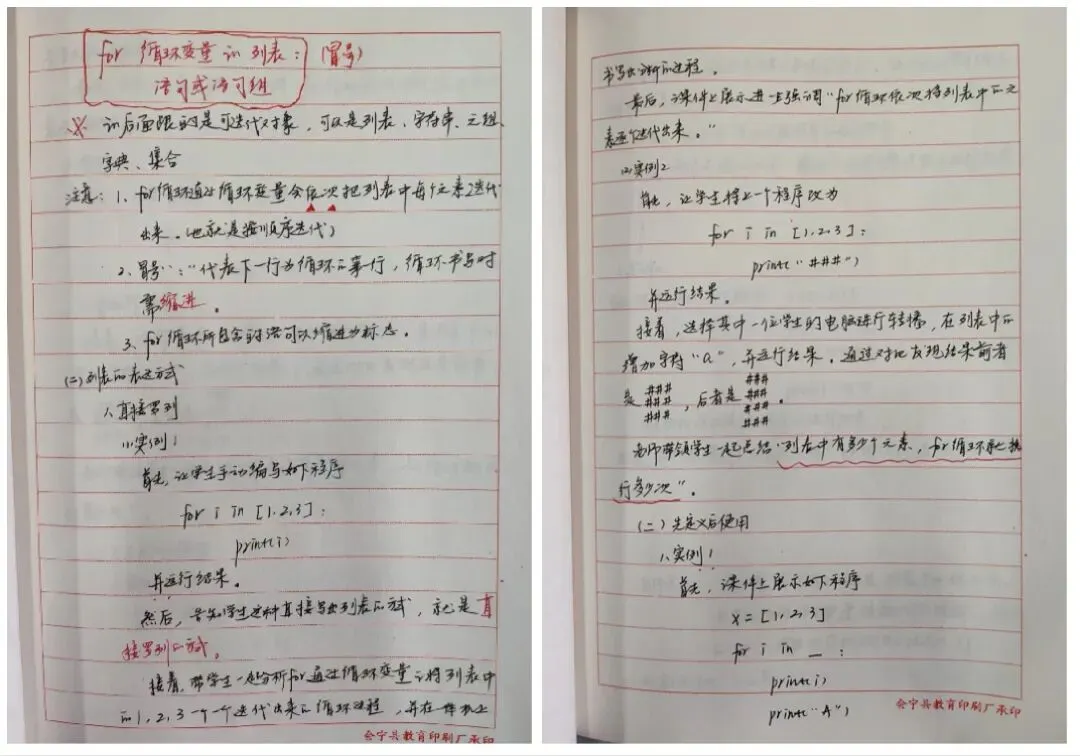 for 循环变量 in 列表： （冒号）
语句或语句组
※ in后面跟的是可迭代对象，可以是列表、字符串、元组、
字典、集合
注意：1、for循环通过循环变量会依次把列表中每个元素迭代
出来。（也就是按顺序迭代）
2、冒号"："代表下一行为循环的第一行，循环书写时
需缩进。
3、for循环所包含的语句以缩进为标志。
(二)列表的表达方式
1、直接罗列
(1)实例1
首先，让学生手动编写如下程序
for i in [1,2,3]:
print(i)
并运行结果。
然后，告知学生这种直接写出列表的方式，就是直
接罗列的方式。
接着，带学生一起分析for通过循环变量i将列表中
的1，2，3一个一个迭代出来的循环过程，并在上
会宁县教育印刷厂承印
书写出分析的过程。
最后，课件上展示进一步强调"for循环依次将列表中的元
素逐个迭代出来。"
(2)实例2
首先，让学生将上一个程序改为
for i in [1,2,3]:
print("###")
并运行结果。
接着，选择其中一位学生的电脑进行转播，在列表中的
增加字符"a"，并运行结果。通过对比发现结果前者
###
###
是 ### ，后者是 ### 。
###
###
###
老师带领学生一起总结"列表中有多少个元素，for循环就执
行多少次"。
(二)先定义后使用
1、实例1
首先，课件上展示如下程序
x=[1,2,3]
for i in __ :
print(i)
print("A")
会宁县教育印刷厂承印